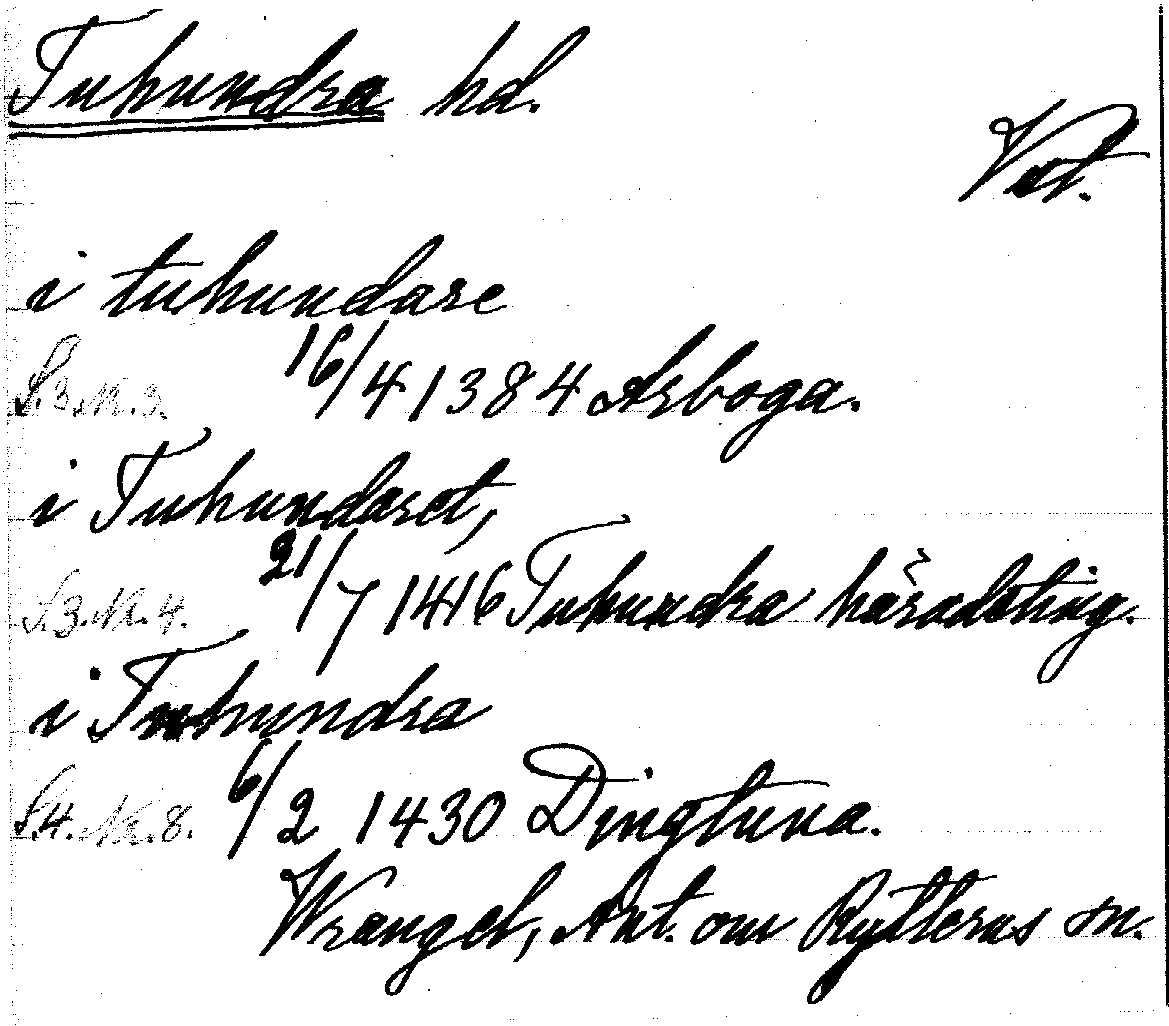 Tuhundra hd.
Vst.
i tuhundare
S.3.Nr.3. 16/4 1384 Arboga.
i Tuhundaret,
S.3.Nr.4. 21/7 1416 Tuhundra häradsting.
i Tuhundra
S.4.Nr.8. 6/2 1430 Dingtuna.
Wrangel, Ant. om Rytterns sn.